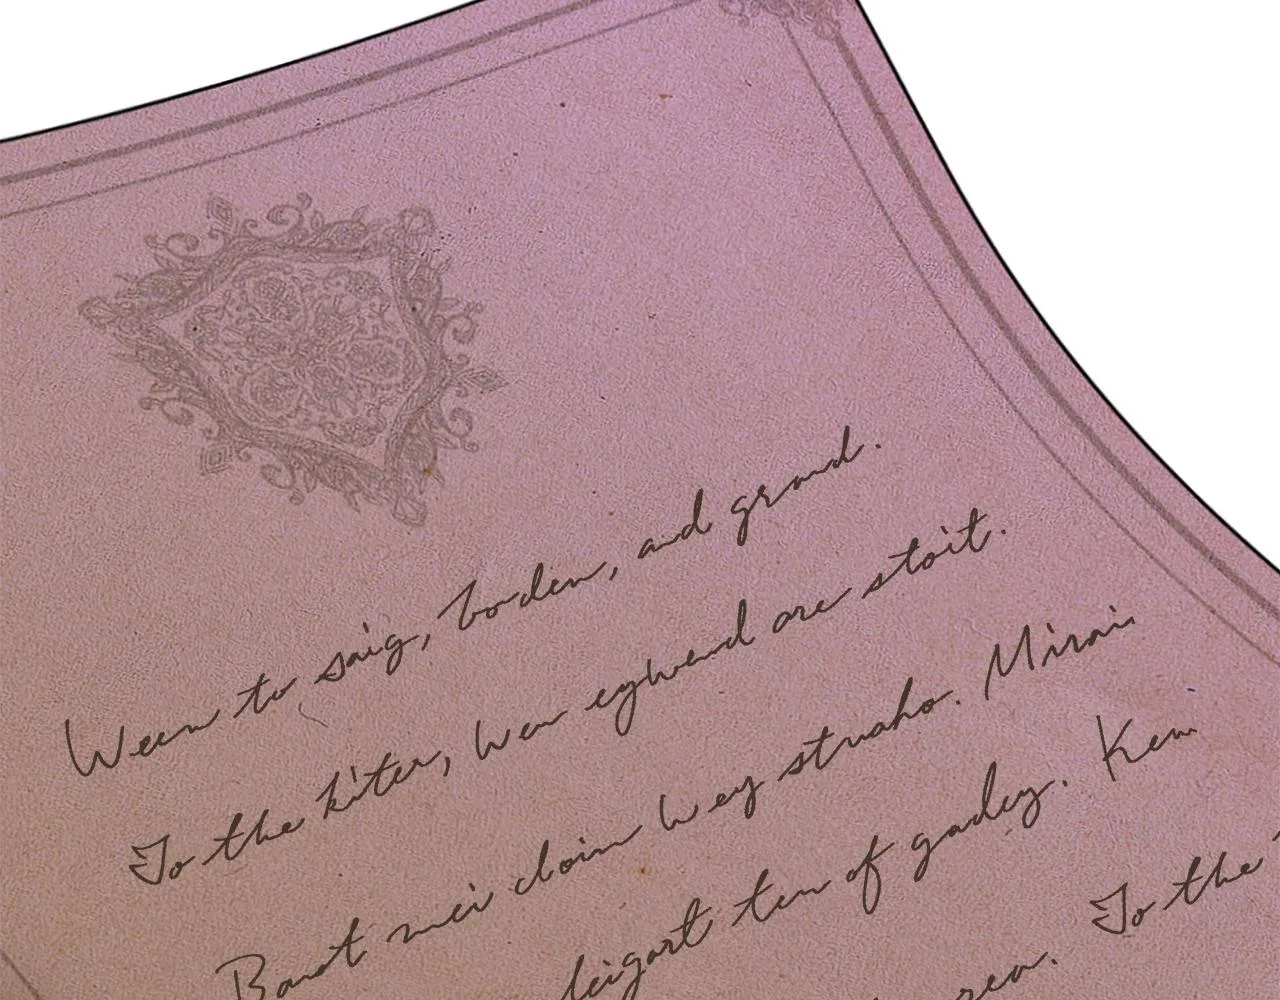 Ween to saig, boden, and grand.
To the kiter, wen egwend are stoit.
Barot mei cloin wey struaho. Mirai
leigart ten of gadey. Ken
To the